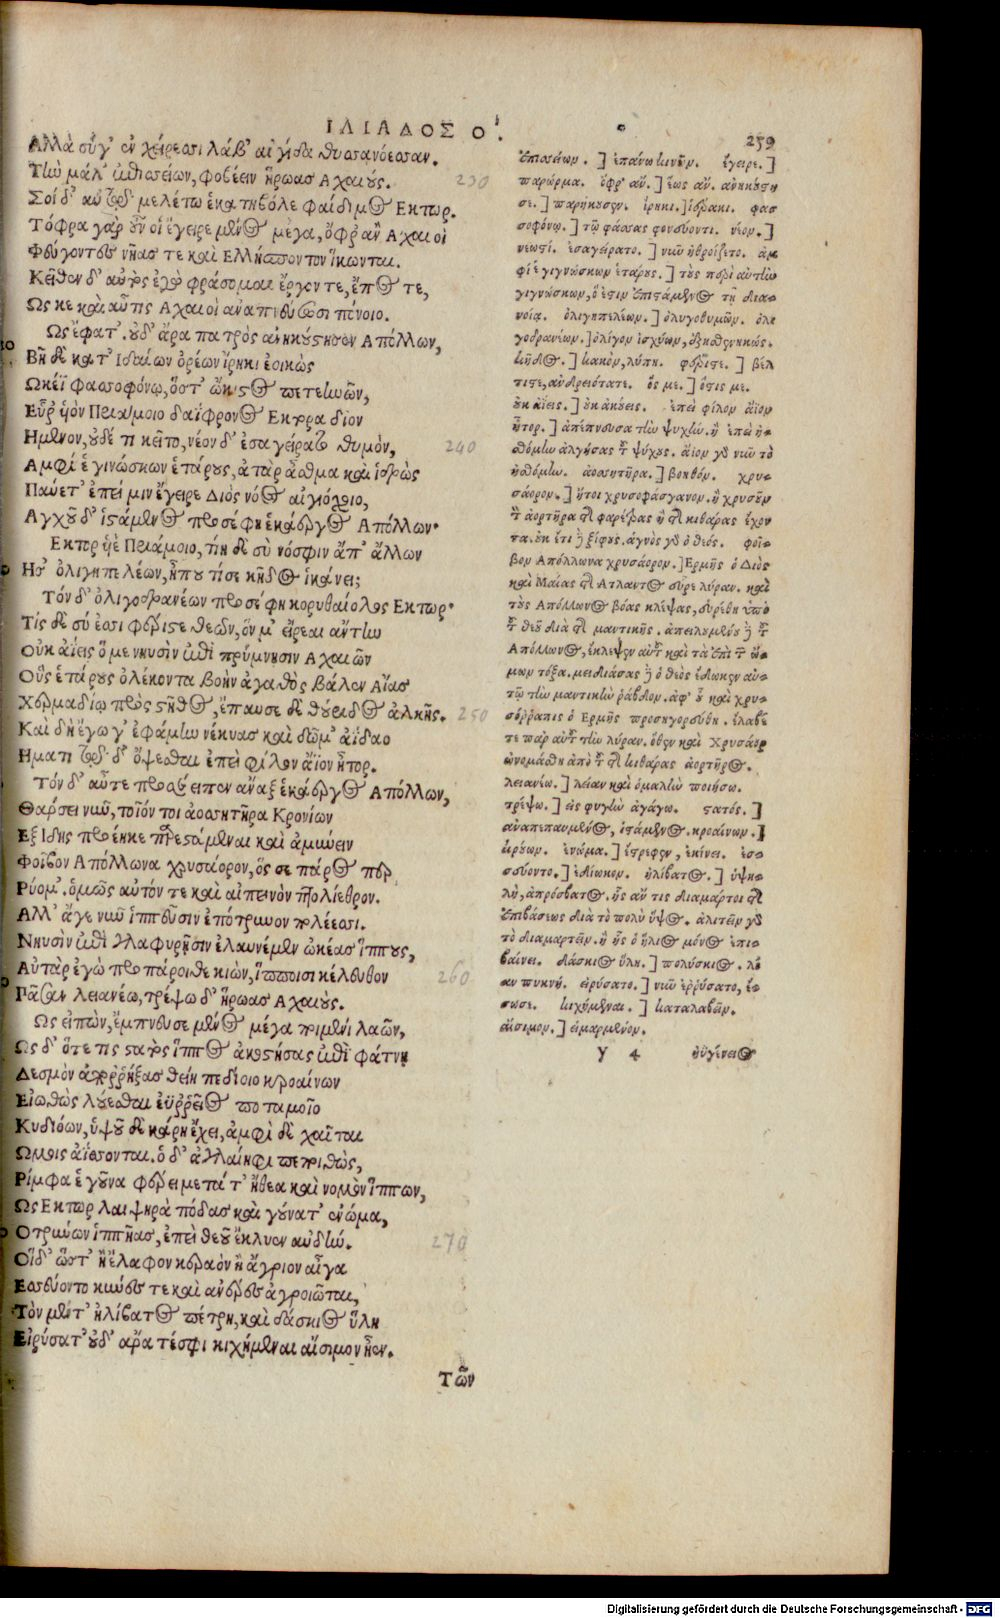 ΙΛΙΑΔΟΣ Ο'. 259
Ἀλλὰ σύγ' ἐν χείρεσσι λάβ' αἰγίδα θυσανόεσσαν.
Τὴν μάλ' ἐπισσείων, φοβέειν ἥρωας Ἀχαιούς. 230
Σοί δ' αὐτῷ μελέτω ἑκατηβόλε φαίδιμος Ἕκτωρ.
Τόφρα γὰρ οὖν οἱ ἔγειρε μένος μέγα, ὄφρ' ἂν Ἀχαιοὶ
Φεύγοντες νῆας τε καὶ Ἑλλήσποντον ἵκωνται.
Κεῖθεν δ' αὐτὸς ἐγὼ φράσομαι ἔργον τε, ἔπος τε,
Ὥς κε καὶ αὖτις Ἀχαιοὶ ἀναπνεύσωσι πόνοιο.
Ὣς ἔφατ'. οὐδ' ἄρα πατρὸς ἀνηκούστησεν Ἀπόλλων,
Βῆ δὲ κατ' Ἰδαίων ὀρέων ἴρηκι ἐοικὼς
Ὠκέϊ φασσοφόνῳ, ὅστ' ὤκιστος πετεηνῶν,
Εὗρ' υἱὸν Πριάμοιο δαΐφρονος Ἕκτορα δῖον
Ἥμενον, οὐδέ τι κεῖτο, νέον δ' ἐσαγείρατο θυμὸν, 240
Ἀμφί ἑ γινώσκων ἑτάρους, ἀτὰρ ἆσθμα καὶ ἱδρὼς
Παύετ' ἐπεί μιν ἔγειρε Διὸς νόος αἰγιόχοιο,
Ἀγχοῦ δ' ἱστάμενος προσέφη ἑκάεργος Ἀπόλλων.
Ἕκτορ υἱὲ Πριάμοιο, τίη δὲ σὺ νόσφιν ἀπ' ἄλλων
Ἧσ' ὀλιγηπελέων, ἦπου τί σε κῆδος ἱκάνει;
Τόν δ' ὀλιγοδρανέων προσέφη κορυθαίολος Ἕκτωρ.
Τίς δὲ σύ ἐσσι φέριστε θεῶν, ὅν μ' εἴρεαι ἄντην
Οὐκ ἀΐεις ὅ με νηυσὶν ἐπὶ πρύμνησιν Ἀχαιῶν
Οὓς ἑτάρους ὀλέκοντα βοὴν ἀγαθὸς βάλεν Αἴας
Χερμαδίῳ πρὸς στῆθος, ἔπαυσε δὲ θούριδος ἀλκῆς. 250
Καὶ δὴ ἔγωγ' ἐφάμην νέκυας καὶ δῶμ' ἀΐδαο
Ἤματι τῷδ' ὄψεσθαι ἐπεὶ φίλον ἄϊον ἦτορ.
Τόν δ' αὖτε προσέειπεν ἄναξ ἑκάεργος Ἀπόλλων,
Θάρσει νῦν, τοῖόν τοι ἀοσσητῆρα Κρονίων
Ἐξ Ἴδης προέηκε παρεστάμεναι καὶ ἀμύνειν
Φοῖβον Ἀπόλλωνα χρυσάορον, ὅς σε πάρος περ
Ῥύομ'. ὁμῶς αὐτόν τε καὶ αἰπεινὸν πτολίεθρον.
Ἀλλ' ἄγε νῦν ἱππεῦσιν ἐπότρυνον πολέεσσι.
Νηυσὶν ἐπὶ γλαφυρῇσιν ἐλαυνέμεν ὠκέας ἵππους,
Αὐτὰρ ἐγὼ προπάροιθε κιὼν, ἵπποισι κέλευθον 260
Πᾶσαν λειανέω, τρέψω δ' ἥρωας Ἀχαιούς.
Ὣς εἰπὼν, ἔμπνευσε μένος μέγα ποιμένι λαῶν,
Ὡς δ' ὅτε τις στατὸς ἵππος ἀκοστήσας ἐπὶ φάτνῃ
Δεσμὸν ἀπορρήξας θείῃ πεδίοιο κροαίνων
Εἰωθὼς λούεσθαι ἐϋρρεῖος ποταμοῖο
Κυδιόων, ὑψοῦ δὲ κάρη ἔχει, ἀμφὶ δὲ χαῖται
Ὤμοις ἀΐσσονται. ὁ δ' ἀγλαΐηφι πεποιθὼς,
Ῥίμφα ἑ γοῦνα φέρει μετά τ' ἤθεα καὶ νομὸν ἵππων,
Ὣς Ἕκτωρ λαιψηρὰ πόδας καὶ γούνατ' ἐνώμα,
Ὀτρύνων ἱππῆας, ἐπεὶ θεοῦ ἔκλυεν αὐδήν. 270
Οἵδ' ὥστ' ἢ ἔλαφον κεραὸν ἢ ἄγριον αἶγα
Ἐσσεύοντο κύνες τε καὶ ἀνέρες ἀγροιῶται,
Τὸν μέντ' ἠλίβατος πέτρη, καὶ δάσκιος ὕλη
Εἰρύσατ' οὐδ' ἄρα τέσφι κιχήμεναι αἴσιμον ἦεν.
Τῶν
Ἐπισσείων.] ἐπάνω κινῶν. ἔγειρε.]
παρώρμα. ὄφρ' ἄν.] ἕως ἄν. ἀνηκούστη
σε.] παρήκουσεν. ἴρηκι.] ἱέρακι. φασ
σοφόνῳ.] τῷ φάσσας φονεύοντι. νέον.]
νεωστί. ἐσαγείρατο.] νῦν ἠθροίζετο. ἀμ
φί ἑ γιγνώσκων ἑτάρους.] τοὺς περὶ αὐτὸν
γιγνώσκων, ὅ ἐστιν ἐπιστάμενος τῇ δια-
νοίᾳ. ὀλιγηπελέων.] ὀλιγοθυμῶν. ὀλι
γοδρανέων.] ὀλίγον ἰσχύων,
κῆδος.] κακὸν, λύπη. φέριστε.] βέλ
τιστε, ἀνδρειότατε. ὅς με.] ὅστις με.
οὐκ ἀΐεις.] οὐκ ἀκούεις. ἐπεὶ φίλον ἄϊον
ἦτορ.] ἀπέπνευσα τὴν ψυχὴν. ἢ ἐπεὶ ᾐ-
σθόμην ἀλγήσας τὴν ψυχήν. ἄϊον γὰρ νῦν τὸ
ᾐσθόμην. ἀοσσητῆρα.] βοηθόν. χρυ-
σάορον.] ἤτοι χρυσοφάσγανον. ἢ χρυσοῦν
τὸν ἀορτῆρα τῆς φαρέτρας ἢ τῆς κιθάρας ἔχον
τα. οὐκ ἔτι δὲ ξίφους. ἁγνὸς γὰρ ὁ θεός. φοῖ-
βον Ἀπόλλωνα χρυσάορον.] Ἑρμῆς ὁ Διὸς
καὶ Μαίας τῆς Ἄτλαντος εὗρε λύραν. καὶ
τοὺς Ἀπόλλωνος βόας κλέψας, εὑρέθη ὑπὸ
τοῦ θεοῦ διὰ τῆς μαντικῆς. ἀπειλουμένου δὲ τοῦ
Ἀπόλλωνος, ἔκλεψεν αὐτοῦ καὶ τὰ ἐπὶ τῶν ὤ-
μων τόξα. μειδιάσας δὲ ὁ θεὸς ἔδωκεν αὐ-
τῷ τὴν μαντικὴν ῥάβδον. ἀφ' οὗ καὶ χρυ-
σόρραπις ὁ Ἑρμῆς προσηγορεύθη. ἔλαβέ
τε παρ' αὐτοῦ τὴν λύραν. ὅθεν καὶ Χρυσάωρ
ὠνομάσθη ἀπὸ τοῦ τῆς κιθάρας ἀορτῆρος.
λειανέω.] λείαν καὶ ὁμαλὴν ποιήσω.
τρέψω.] εἰς φυγὴν ἀγάγω. στατός.]
ἀναπεπαυμένος, ἱστάμενος. κροαίνων.]
κρούων. ἐνώμα.] ἔστρεφεν, ἐκίνει. ἐσ-
σεύοντο.] ἐδίωκον. ἠλίβατος.] ὑψη-
λὴ, ἀπρόσβατος. ἧς ἄν τις διαμάρτοι τῆς
ἐπιβάσεως διὰ τὸ πολὺ ὕψος. ἀλιτεῖν γὰρ
τὸ διαμαρτεῖν. ἢ ἧς ὁ ἥλιος μόνος ἐπι-
βαίνει. δάσκιος ὕλη.] πολύσκιος.
αν πυκνή. εἰρύσατο.] νῦν ἐρρύσατο, ἔ-
σωσε. κιχήμεναι.] καταλαβεῖν.
αἴσιμον.] εἱμαρμένον.
Υ 4 ἠϋγένειος
Digitalisierung gefördert durch die Deutsche Forschungsgemeinschaft - DFG